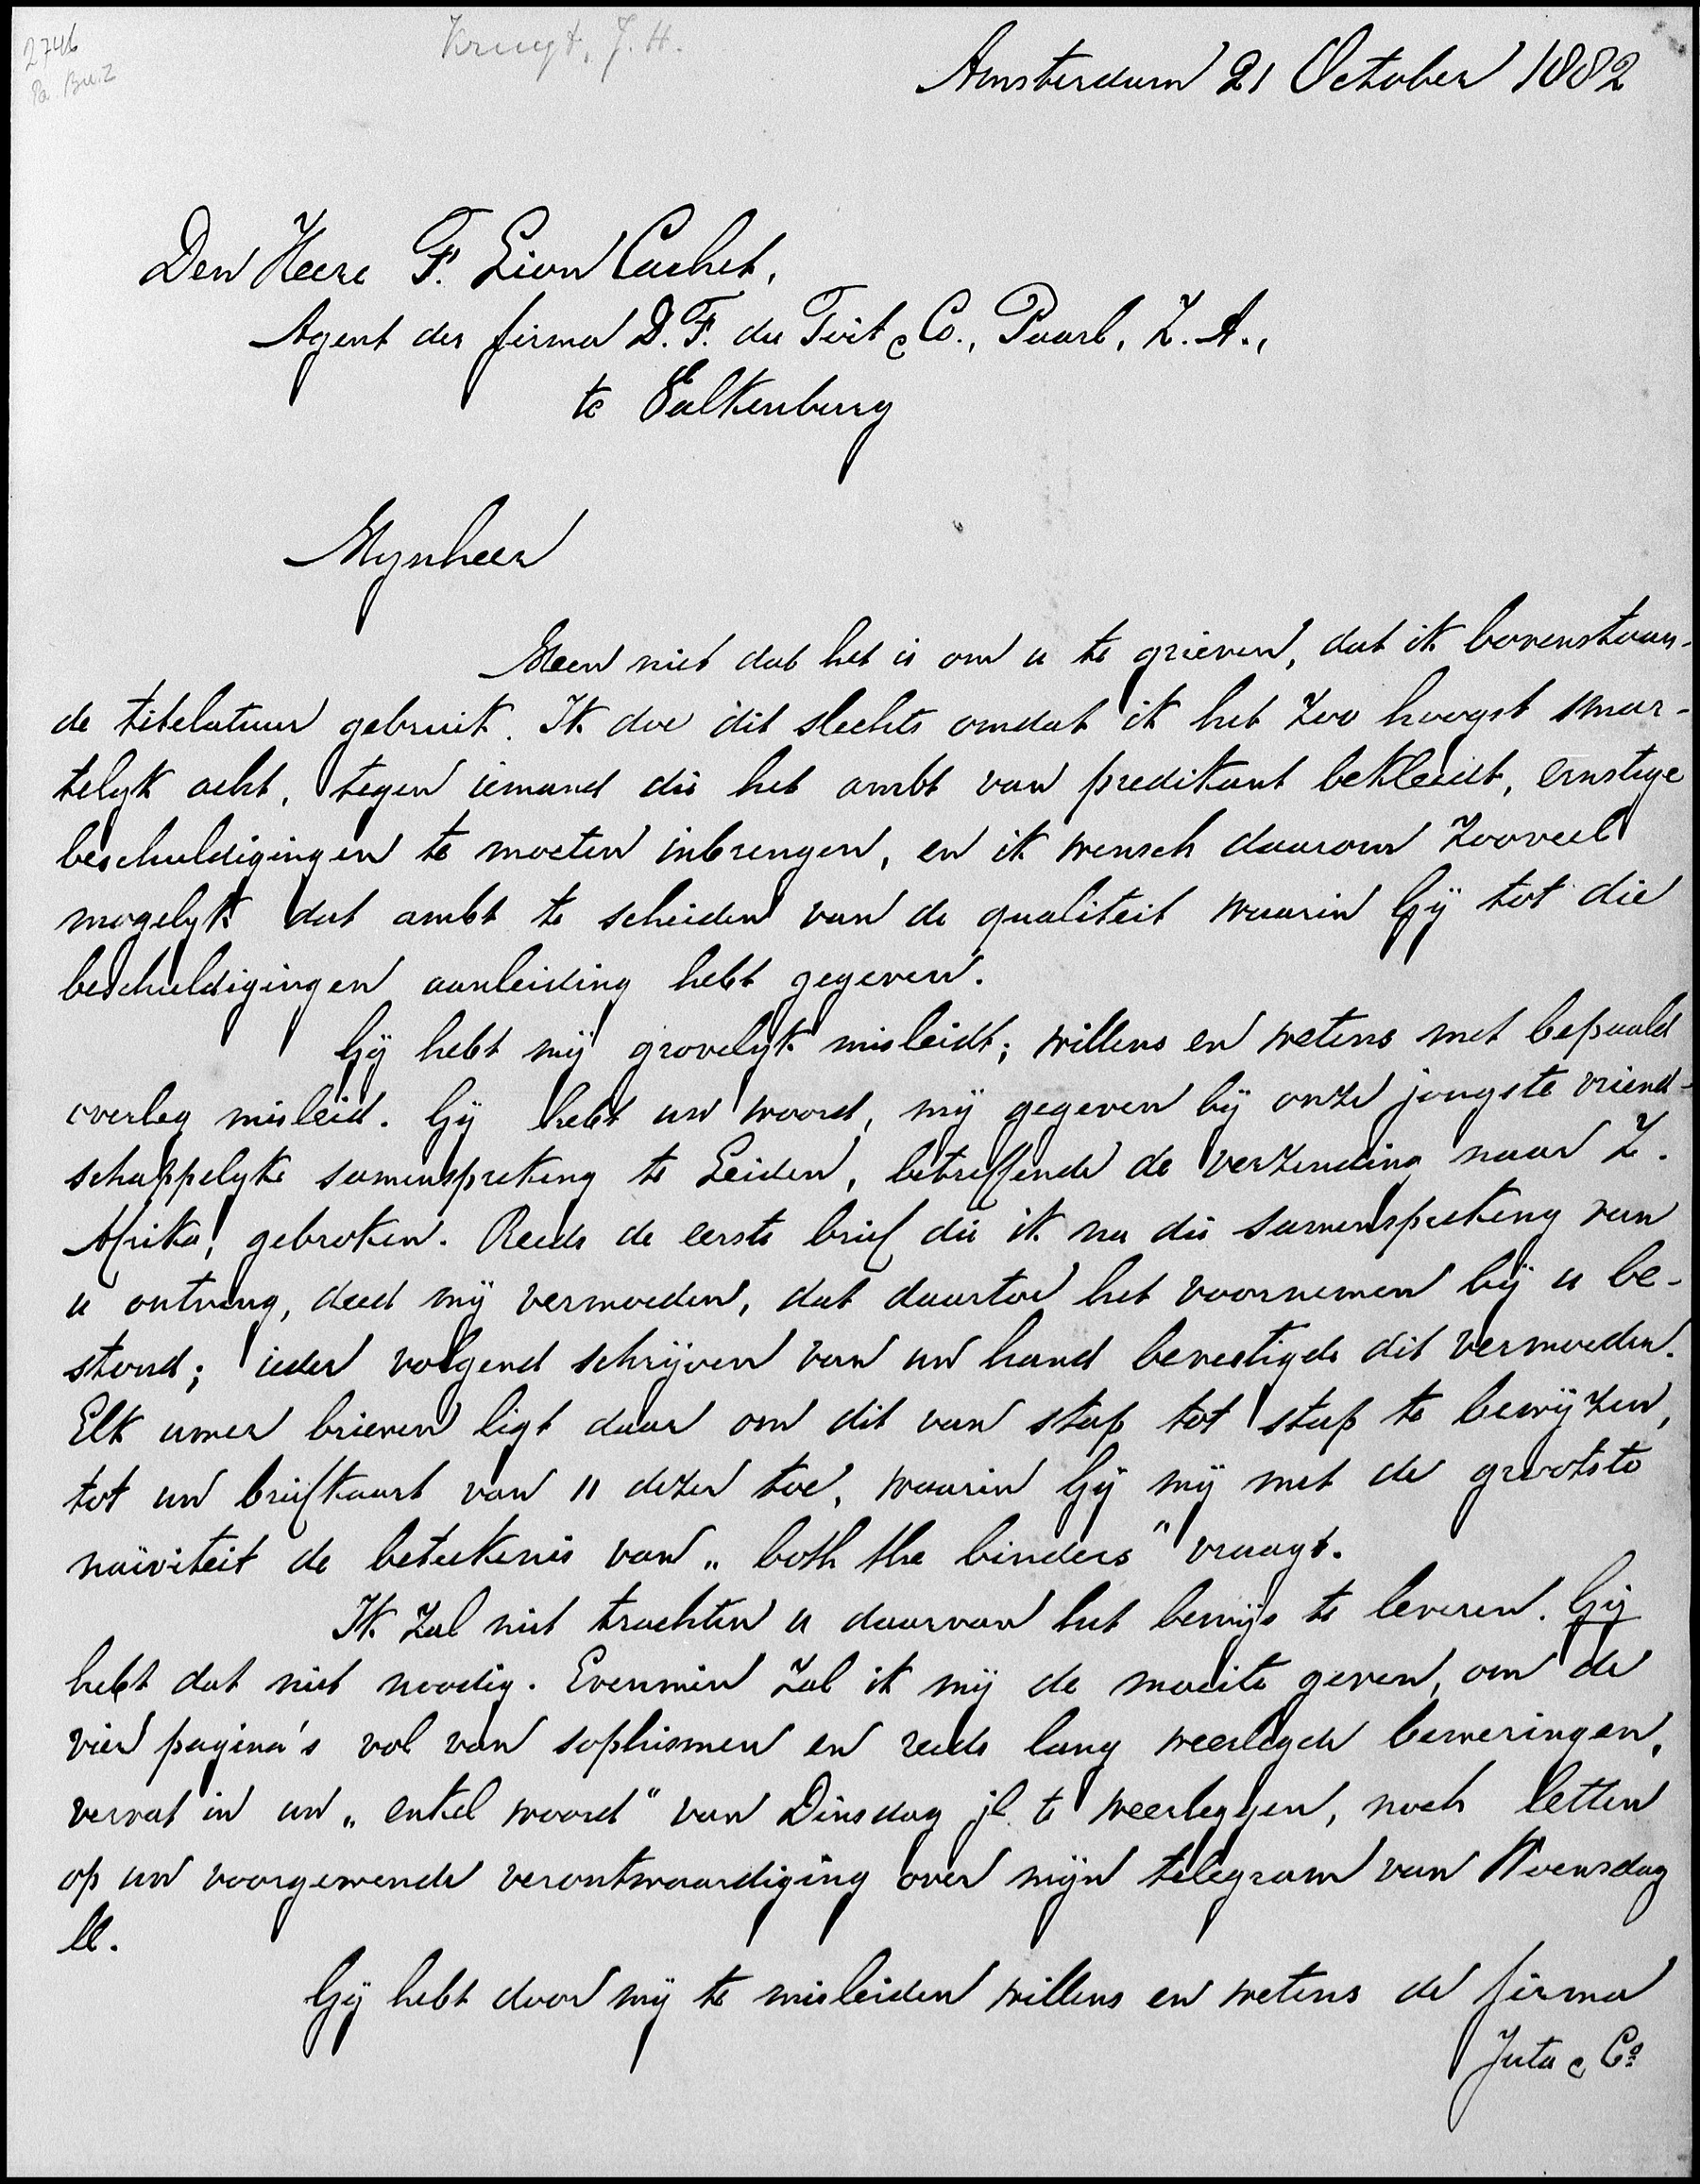 2746
Pa. Bu.2
Kruyt, J. H.
Amsterdam 21 October 1882
Den Heere F. Lion Cachet,
Agent der firma D. F. du Toit & Co., Paarl, Z. A.,
te Valkenburg
Mynheer
Meen niet dat het is om u te grieven, dat ik bovenstaan-
de titelatuur gebruik. Ik doe dit slechts omdat ik het zoo hoogst smar-
telyk acht, tegen iemand die het ambt van predikant bekleedt, ernstige
beschuldigingen te moeten inbrengen, en ik wensch daarom zooveel
mogelyk dat ambt te scheiden van de qualiteit waarin Gÿ tot die
beschuldigingen aanleiding hebt gegeven.
Gÿ hebt mÿ grovelyk misleidt; willens en wetens met bepaald
overleg misleid. Gÿ hebt uw woord, mÿ gegeven bÿ onze jongste vriend-
schappelyke samenspreking te Leiden, betreffende de verzending naar Z.
Afrika, gebroken. Reeds de eerste brief die ik na die samenspreking van
u ontving, deed mÿ vermoeden, dat daartoe het voornemen bÿ u be-
stond; ieder volgend schrijven van uw hand bevestigde dit vermoeden.
Elk uwer brieven ligt daar om dit van stap tot stap te bewÿzen,
tot uw briefkaart van 11 dezer toe, waarin Gÿ mÿ met de grootste
naïviteit de beteekenis van „both the binders" vraagt.
Ik zal niet trachten u daarvan het bewijs te leveren. Gij
hebt dat niet noodig. Evenmin zal ik mÿ de moeite geven, om de
vier pagina's vol van sophismen en reeds lang weerlegde beweringen,
vervat in uw „enkel woord" van Dinsdag jl. te weerleggen, noch letten
op uw voorgewende verontwaardiging over mijn telegram van Woensdag
ll.
Gÿ hebt door mÿ te misleiden willens en wetens de firma
Juta & Co